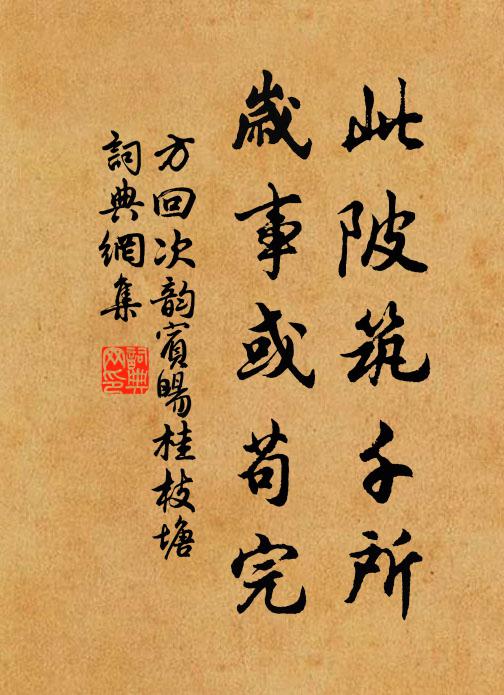 此陂筑千所
歲事或苟完
方回次韵賓暘桂枝塘
詞典網集
詞典網印